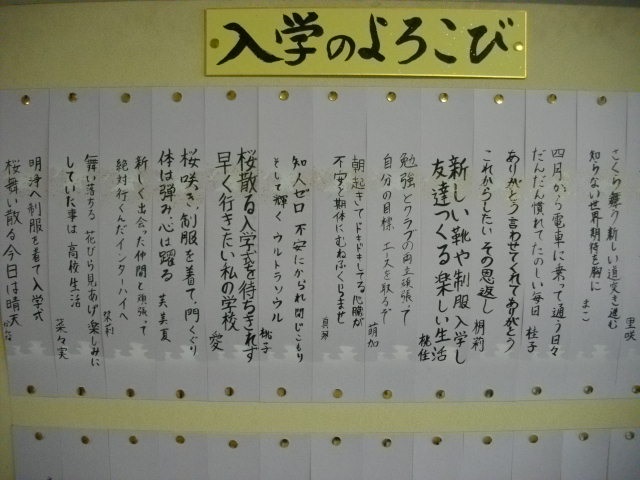 入学のよろこび
里咲
さくら舞う新しい道突き進む
知らない世界期待を胸に
まこ
四月から電車に乗って通う日々
だんだん慣れてたのしい毎日
桂子
ありがとう言わせてくれてありがとう
これからしたいその恩返し
桐莉
新しい靴や制服入学し
友達つくる楽しい生活
桃佳
勉強とクラブの両立頑張って
自分の目標エースを取るぞ
萌加
朝起きてドキドキしてる心臓が
不安と期待にむねふくらませ
知人ゼロ不安にかられ閉じこもり
そして輝くウルトラソウル
桃子
桜散る入学式を待ちきれず
早く行きたい私の学校
愛
桜咲き、制服を着て、門くぐり
体は弾み、心は躍る
芙美夏
新しく出会った仲間と頑張って
絶対行くんだインターハイへ
茉莉
舞い落ちる花びら見あげ楽しみに
していた事は高校生活
菜々実
明浄へ制服を着て入学式
桜舞い散る今日は晴天